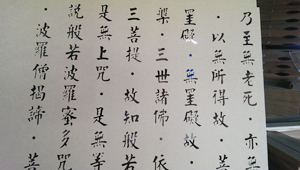 乃至無老死·亦無
·以無所得故·菩
罣礙·無罣礙故·
槃·三世諸佛·依
三菩提·故知般若
是無上咒·是無等
說般若波羅蜜多咒
·波羅僧揭諦·菩